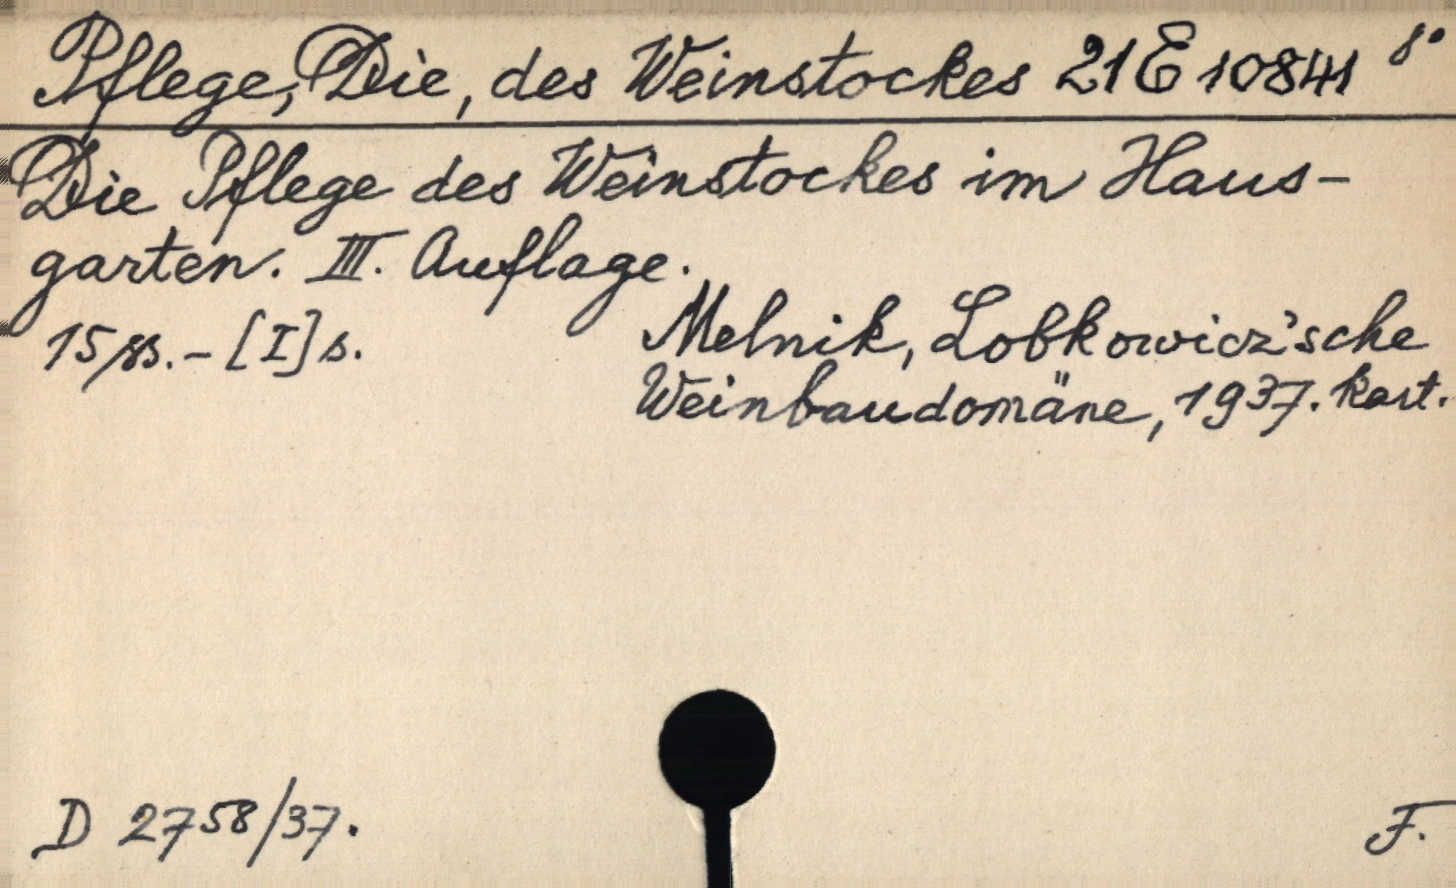 Pflege, Die, des Weinstockes 21 E 10841 8°
Die Pflege des Weinstockes im Haus-
garten. III. Auflage.
15 ss. - [I] s.
Melnik, Lobkowicz'sche
Weinbaudomäne, 1937. kart.
D 2758/37.
F.